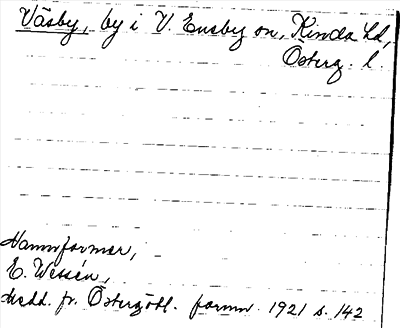 Väsby, by i V. Eneby sn, Kinda hd,
Österg. l.
Namnformer,
E. Wessén,
Medd. fr. Östergötl. fornm. 1921 s. 142